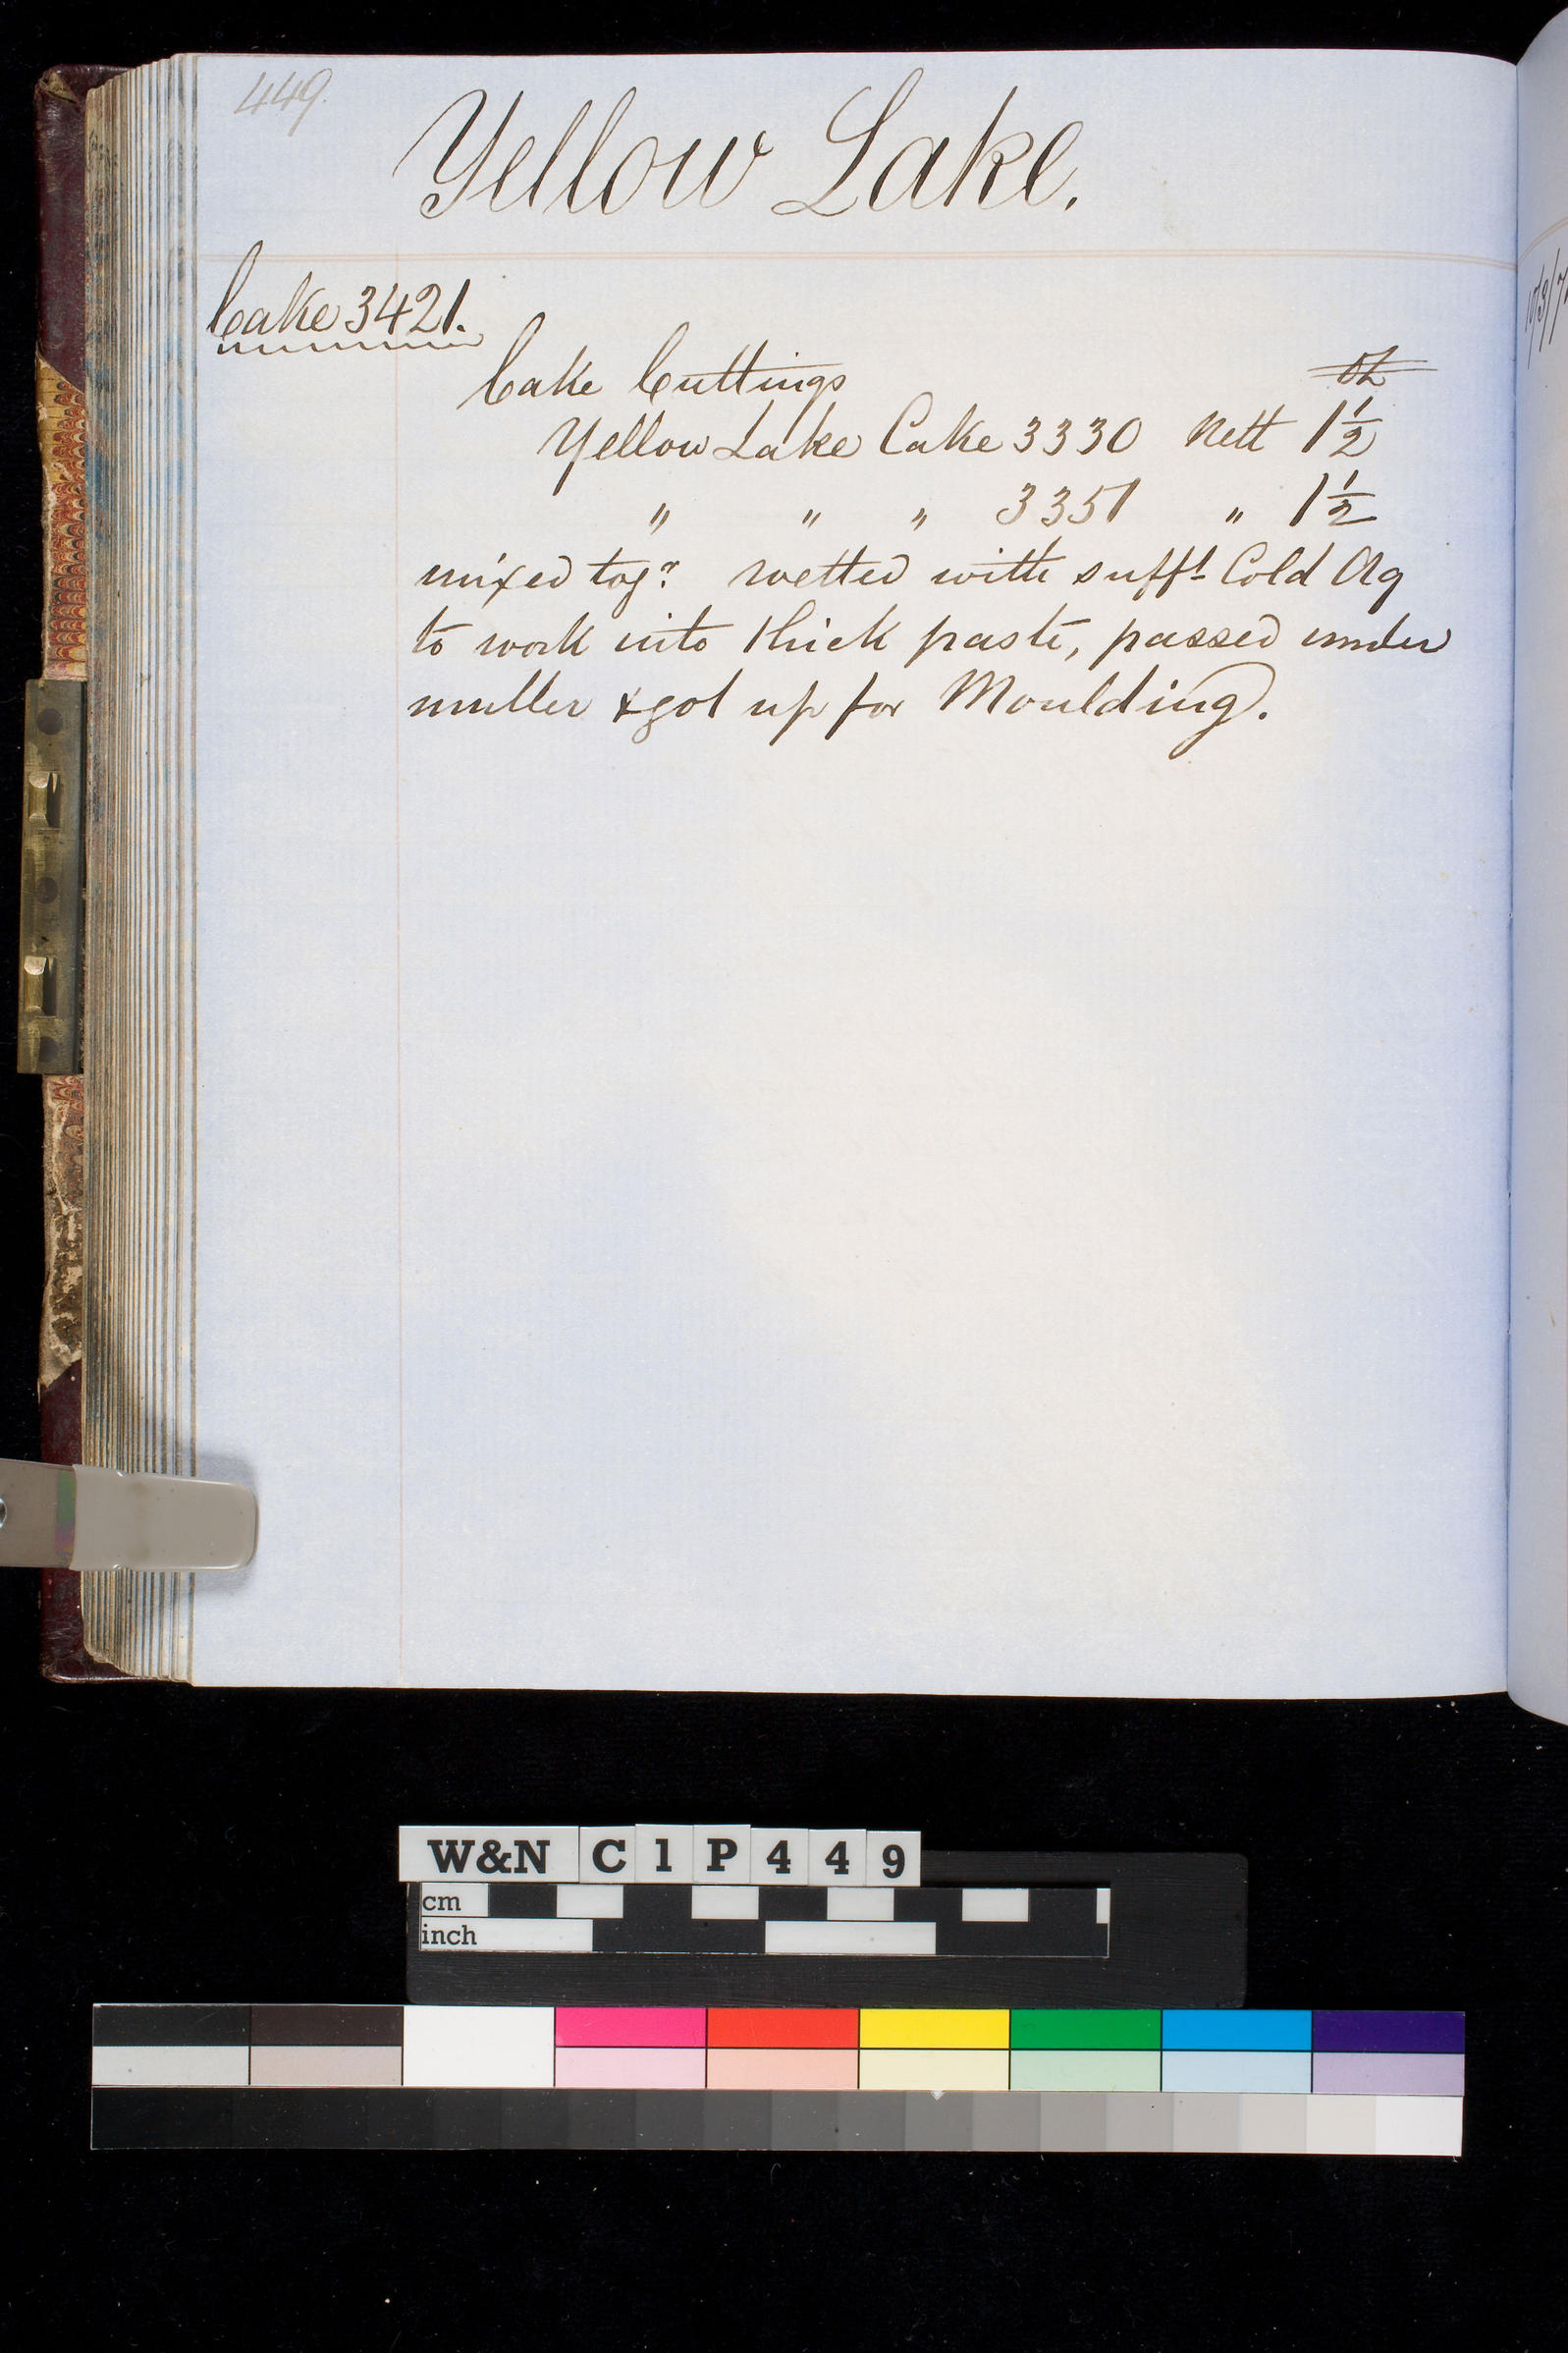 449.
Yellow Lake.
Cake 3421.
Cake Cuttings
Yellow Lake Cake 3330 Nett 1½
" " " 3351 " 1½
mixed togr. wetted with sufft. Cold Aq
to work into thick paste, passed under
muller & got up for Moulding.
W&N C1P449
cm
inch